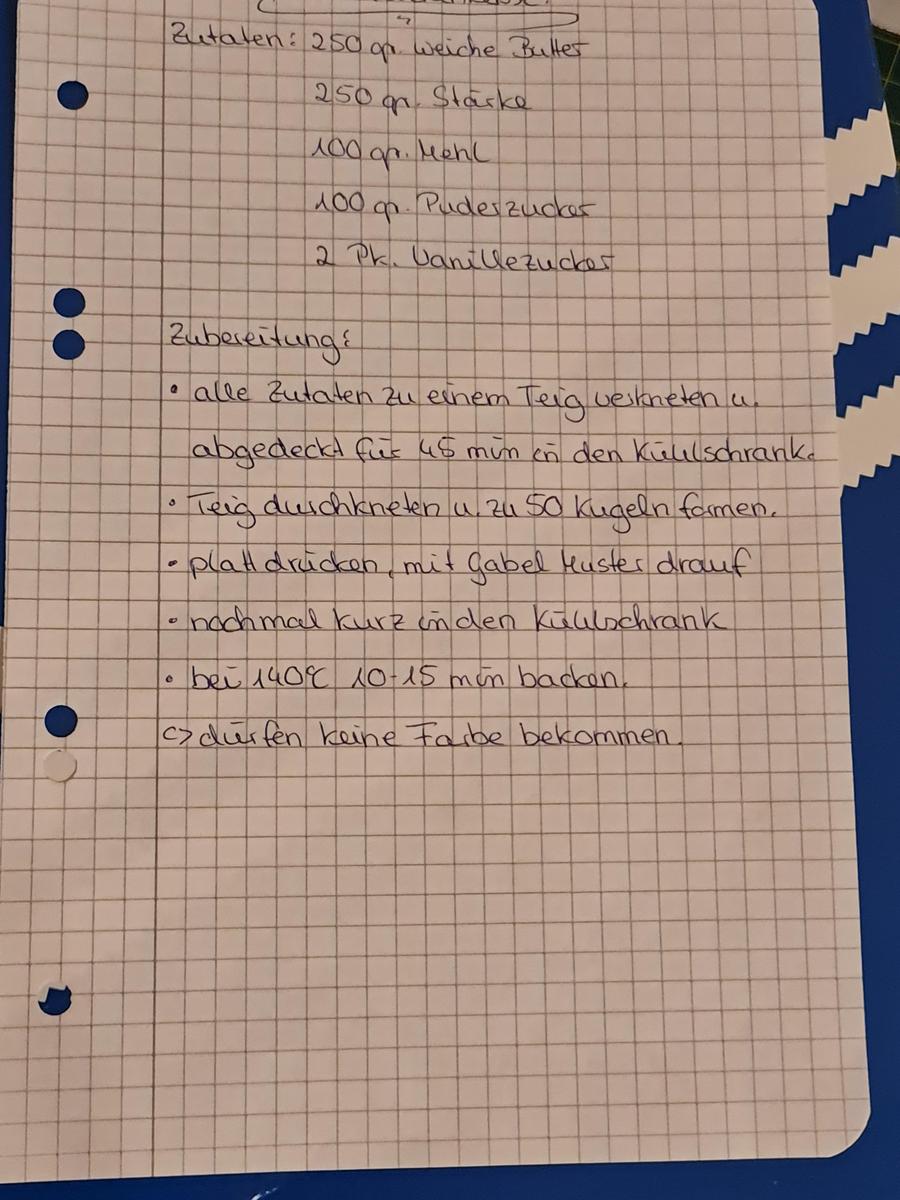 Zutaten: 250 gr. weiche Butter
250 gr. Stärke
100 gr. Mehl
100 gr. Puderzucker
2 Pk. Vanillezucker
Zubereitung:
• alle Zutaten zu einem Teig verkneten u.
abgedeckt für 45 min in den Kühlschrank.
• Teig durchkneten u. zu 50 Kugeln formen.
• platt drücken, mit Gabel Muster drauf
• nochmal kurz in den Kühlschrank
• bei 140°C 10-15 min backen.
↪ dürfen keine Farbe bekommen.